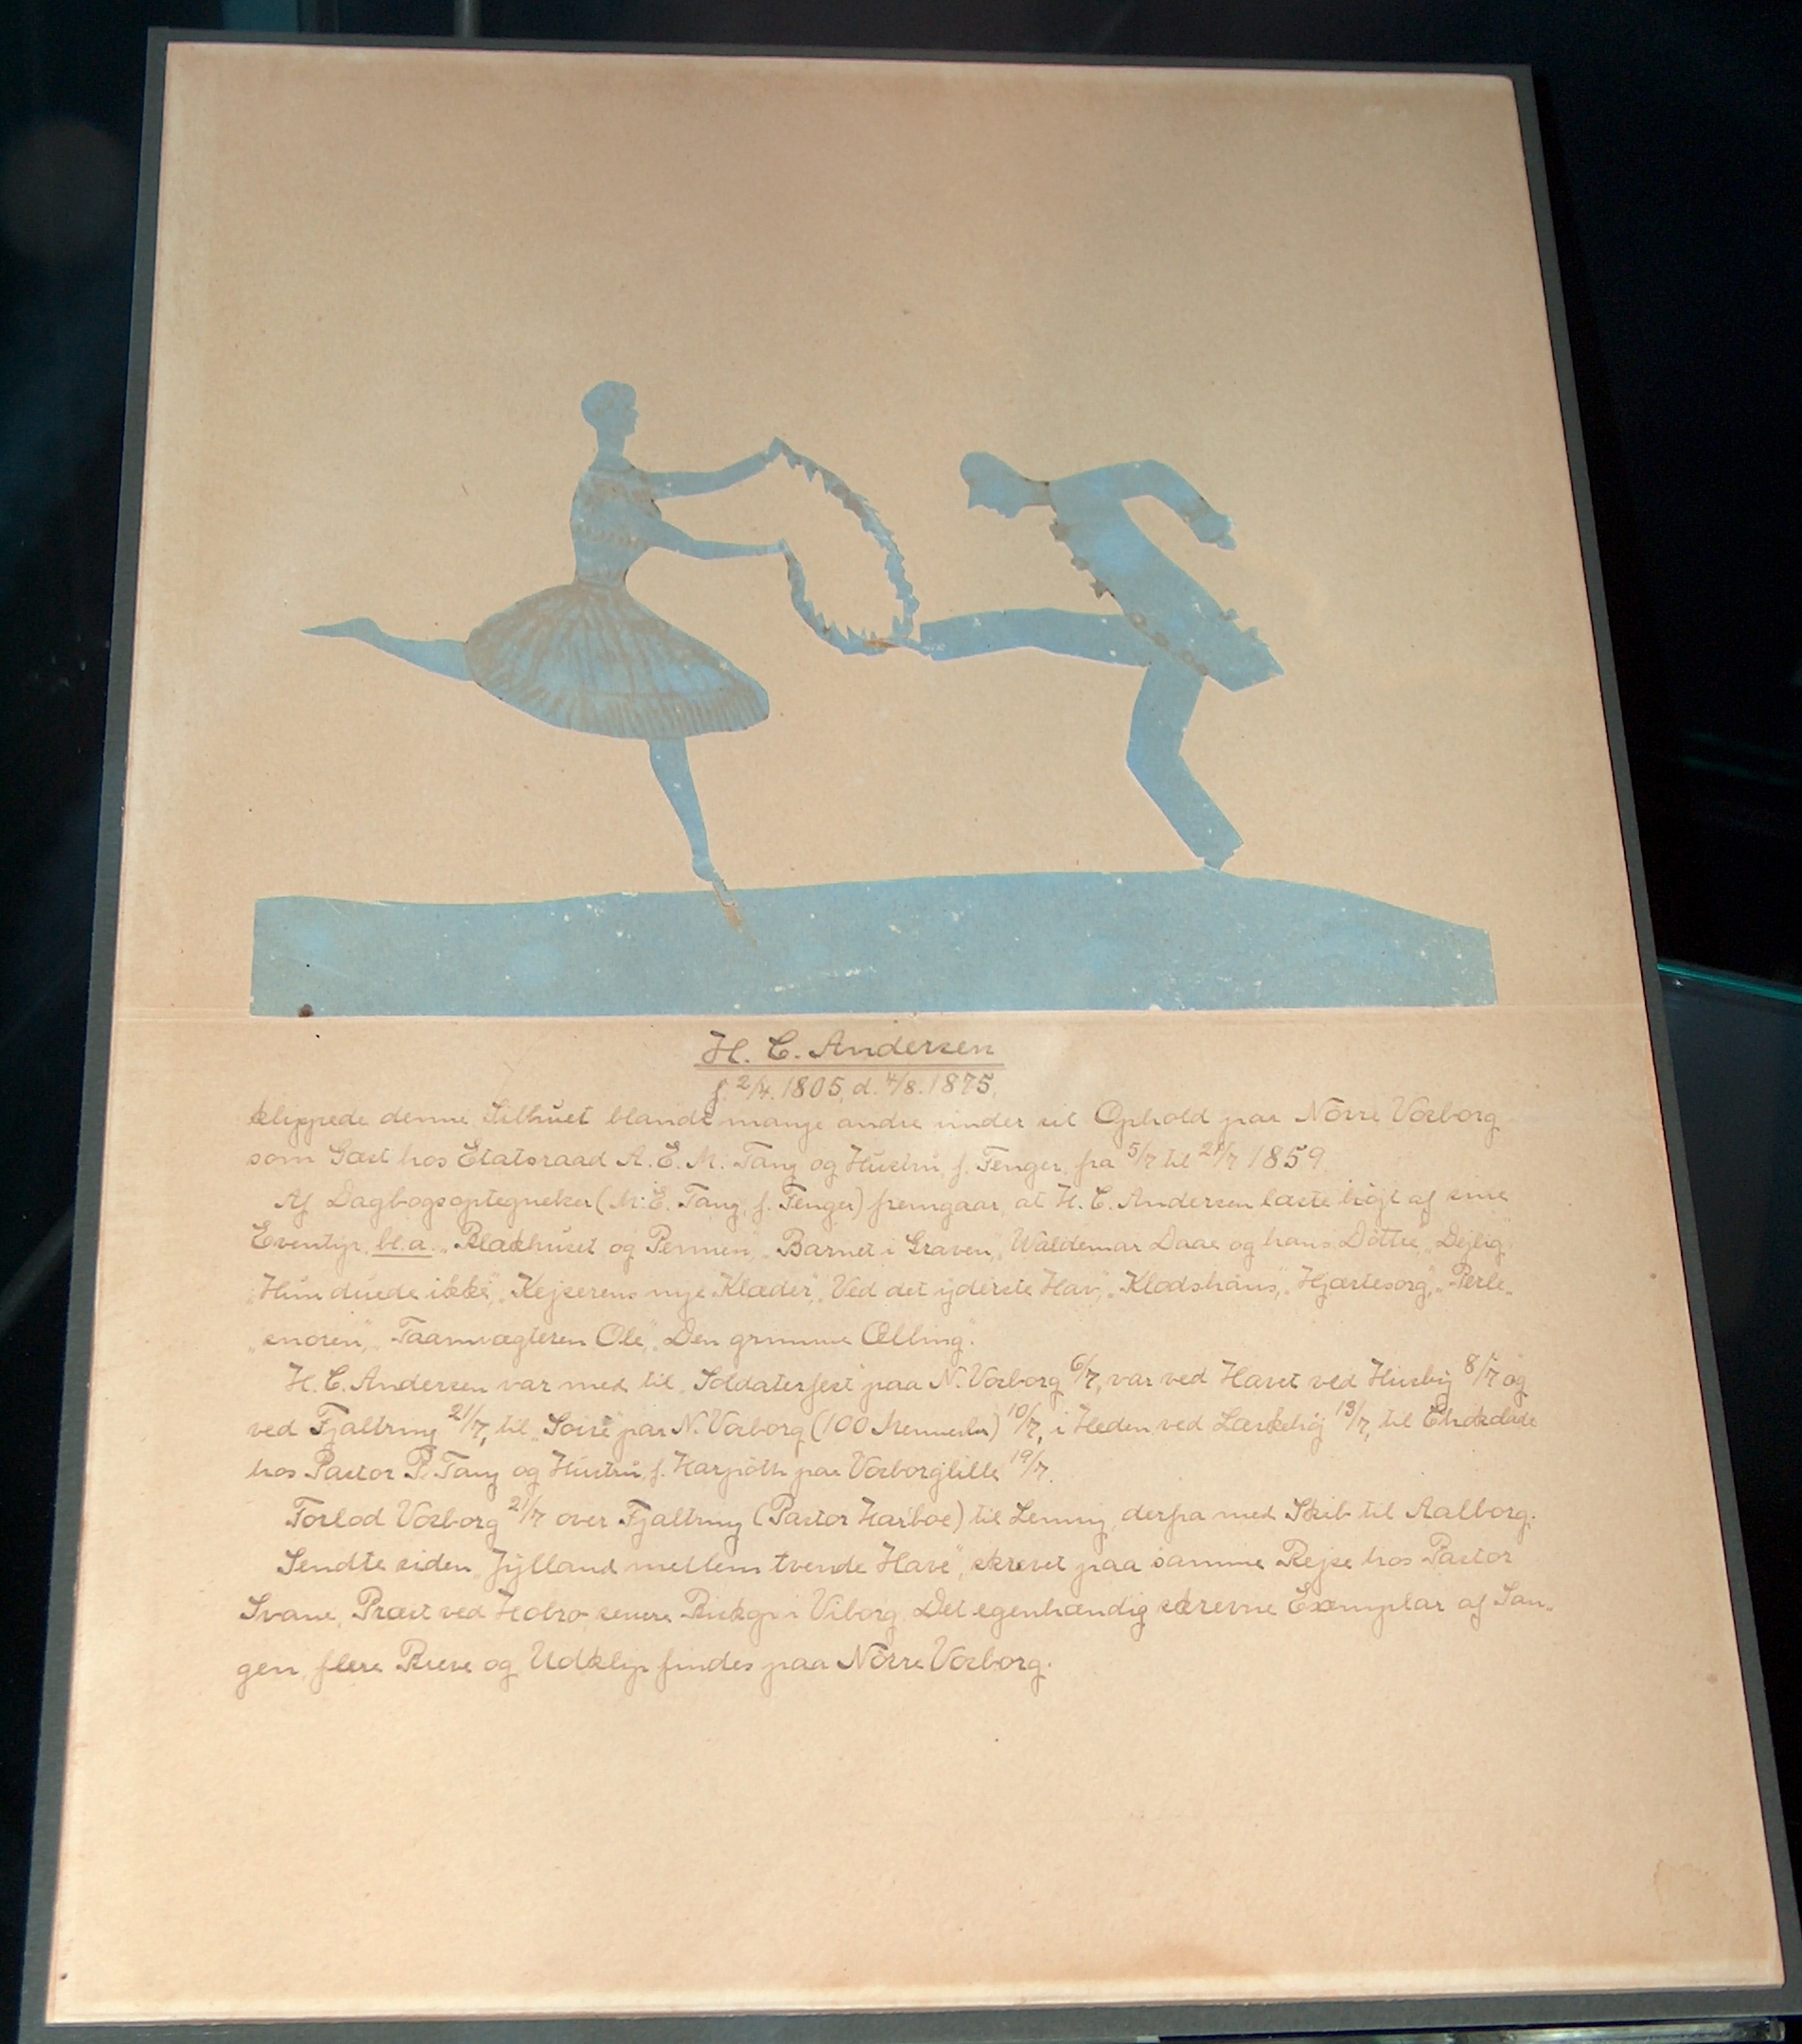 H. C. Andersen
f. 2/4. 1805, d. 4/8. 1875,
klippede denne Silhuet blandt mange andre under sit Ophold paa Nörre Vosborg
som Gæst hos Etatsraad A. E. M. Tang og Hustru, f. Fenger, fra 5/7 til 21/7 1859.
Af Dagbogsoptegnelser (M. E. Tang, f. Fenger) fremgaar, at H. C. Andersen læste højt af sine
Eventyr, bl. a. „Blækhuset og Pennen", „Barnet i Graven", „Valdemar Daae og hans Döttre", „Dejlig",
„Hun duede ikke", „Kejserens nye Klæder", „Ved det yderste Hav", „Klodshans", „Hjertesorg", „Perle-
„snoren", „Taarnvægteren Ole", „Den grimme Ælling".
H. C. Andersen var med til „Soldaterfest" paa N. Vosborg 6/7, var ved Havet ved Husby 8/7 og
ved Fjaltring 21/7, til „Soiré" paa N. Vosborg (100 Mennesker) 10/7, i Heden ved Lærkehöj 13/7, til
hos Pastor P. Tang og Hustru, f. paa Vosborglille 19/7.
Forlod Vosborg 21/7 over Fjaltring (Pastor Harboe) til Lemvig, derfra med Skib til Aalborg.
Sendte siden „Jylland mellem tvende Have", skrevet paa samme Rejse hos Pastor
Svane, Præst ved Hobro, senere Biskop i Viborg. Det egenhændig skrevne Exemplar af San-
gen, flere Breve og Udklip findes paa Nörre Vosborg.